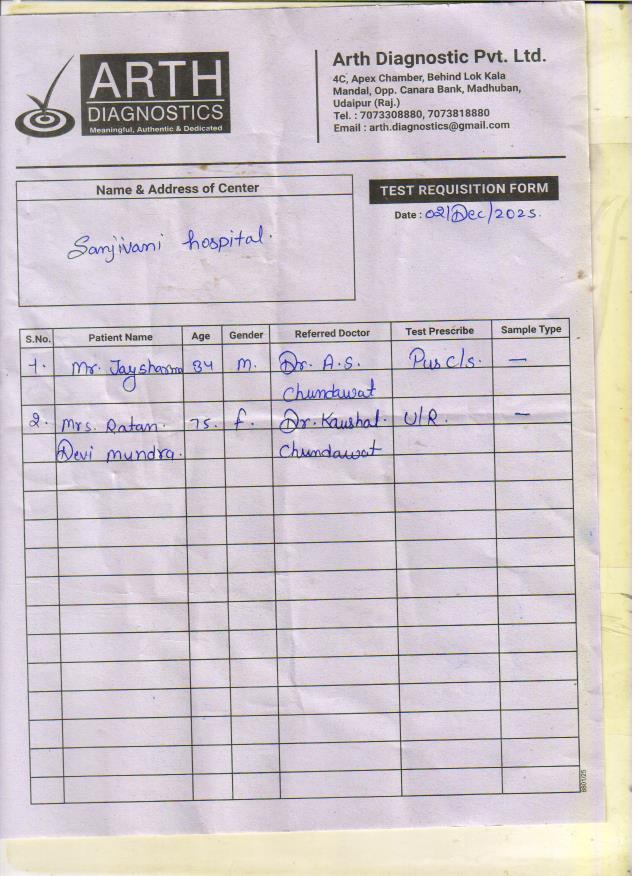 ARTH
DIAGNOSTICS
Meaningful, Authentic & Dedicated
Arth Diagnostic Pvt. Ltd.
4C, Apex Chamber, Behind Lok Kala
Mandal, Opp. Canara Bank, Madhuban,
Udaipur (Raj.)
Tel. : 7073308880, 7073818880
Email : arth.diagnostics@gmail.com
Name & Address of Center
Sanjivani hospital.
TEST REQUISITION FORM
Date : 02/Dec/2025.
S.No. Patient Name Age Gender Referred Doctor Test Prescribe Sample Type
1. Mr. Jaysharma 34 M. Dr. A.S. Pus C/s. —
Chundawat
2. Mrs. Ratan. 75. f. Dr. Kaushal. U/R. —
Devi mundra. Chundawat